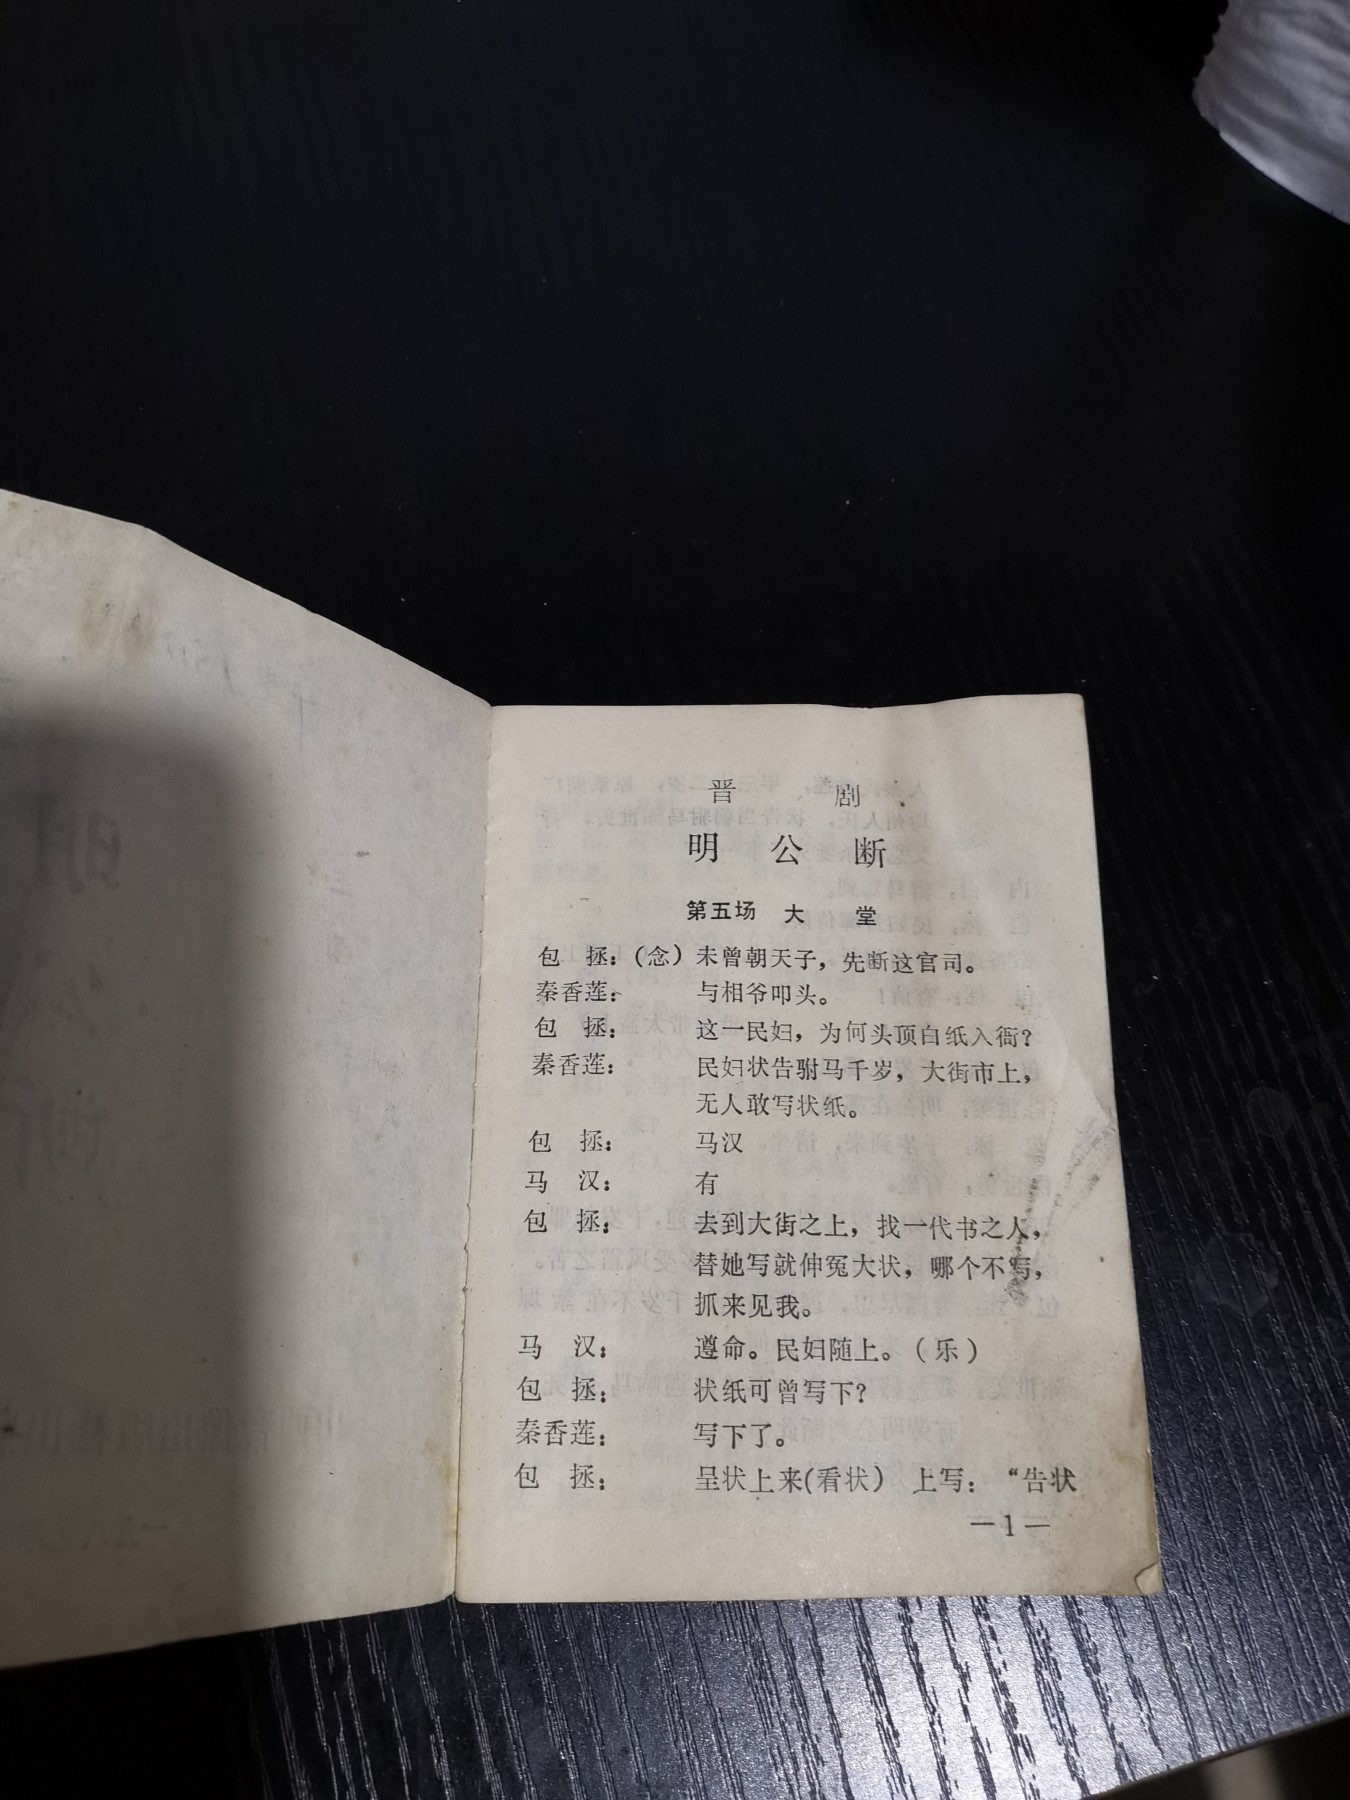 晋 剧
明 公 断
第五场 大 堂
包 拯：（念）未曾朝天子，先断这官司。
秦香莲： 与相爷叩头。
包 拯： 这一民妇，为何头顶白纸入衙？
秦香莲： 民妇状告驸马千岁，大街市上，
无人敢写状纸。
包 拯： 马汉
马 汉： 有
包 拯： 去到大街之上，找一代书之人，
替她写就伸冤大状，哪个不写，
抓来见我。
马 汉： 遵命。民妇随上。（乐）
包 拯： 状纸可曾写下？
秦香莲： 写下了。
包 拯： 呈状上来（看状） 上写：“告状
—1—